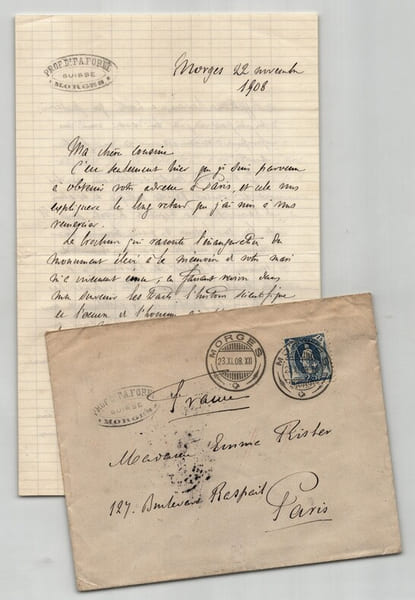 PROF. Dr. F. A. FOREL
SUISSE
MORGES
Morges 22 novembre
1908
Ma chère cousine
C'est seulement hier que je suis parvenu
à obtenir votre adresse à Paris, et cela vous
expliquera le long retard que j'ai mis à vous
remercier.
La brochure qui raconte l'inauguration du
monument élevé à la mémoire de votre mari
m'a vivement ému; en faisant revivre dans
mes souvenirs les traits, l'histoire scientifique
de l'homme
MORGES
23.XI.08.XII
PROF. Dr. F. A. FOREL
SUISSE
MORGES
France
Madame Emma Risler
127. Boulevard Raspail
Paris